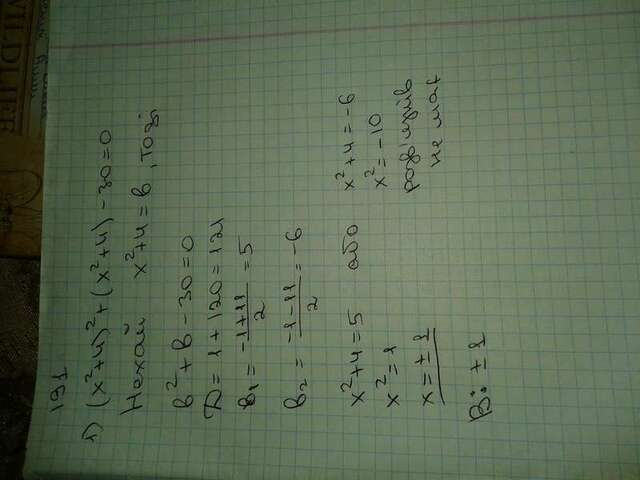 VII.DLIER
191
1) (x²+4)²+(x²+4)-30=0
Нехай x²+4=в, тоді
в²+в-30=0
D=1+120=121
в₁=\frac{-1+11}{2}=5
в₂=\frac{-1-11}{2}=-6
x²+4=5 або x²+4=-6
x²=1 x²=-10
x=±1 розв'язків
не має
В: ±1